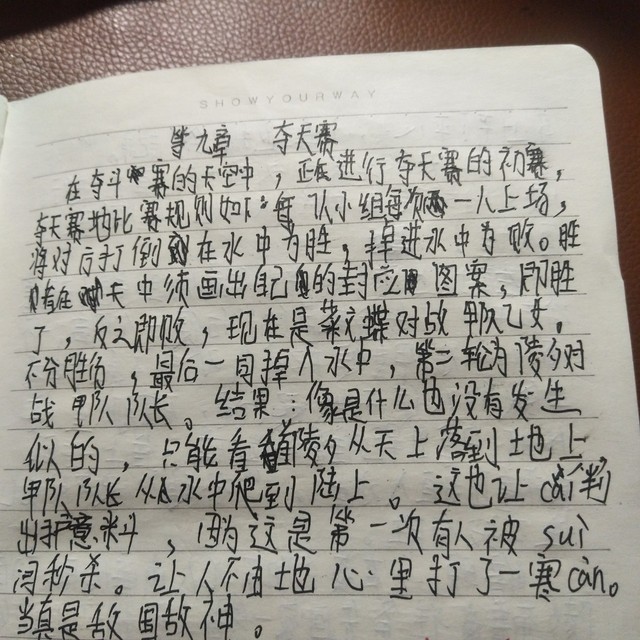 SHOWYOURWAY
第九章 夺天赛
在夺斗赛的天空中，正在进行夺天赛的初赛，
夺天赛地比赛规则如下：每队小组每次一人上场，
将对方打倒在水中为胜，掉进水中为败。胜
者在天中须画出自己的封应图案，即胜
了，反之即败，现在是紫文蝶对战甲队乙女。
不分胜负，最后一同掉入水中，第二轮为陵夕对
战甲队队长。结果：像是什么也没有发生
似的，只能看着陵夕从天上落到地上，
甲队队长从水中爬到陆上。这也让cái判
出乎意料，因为这是第一次有人被suì
间秒杀。让人不由地心里打了一寒cán。
当真是敌国敌神。